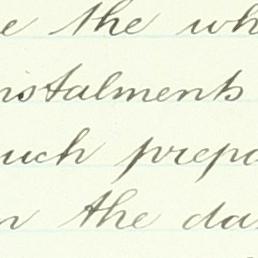 e the wh
nstalments
uch prepa
n the da